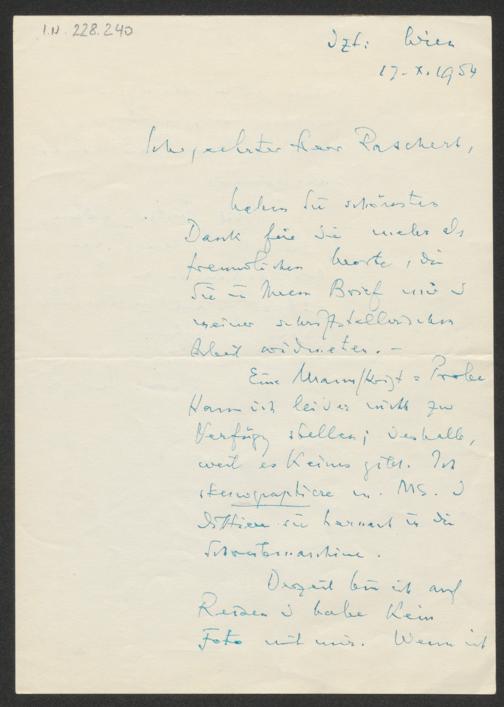 I.N. 228.240
Dzt: Wien
17. X. 1954
Sehr geehrter Herr Raschert,
haben Sie schönsten
Dank für die mehr als
freundlichen Worte, die
Sie in Ihrem Brief mir &
meiner schriftstellerischen
Arbeit widmeten. –
Eine Manuskript = Probe
kann ich leider nicht zur
Verfügg stellen; deshalb,
weil es keine gibt. Ich
stenographiere m. MS. &
diktiere sie hernach in die
Schreibmaschine.
Derzeit bin ich auf
Reisen & habe kein
Foto mit mir. Wenn ich